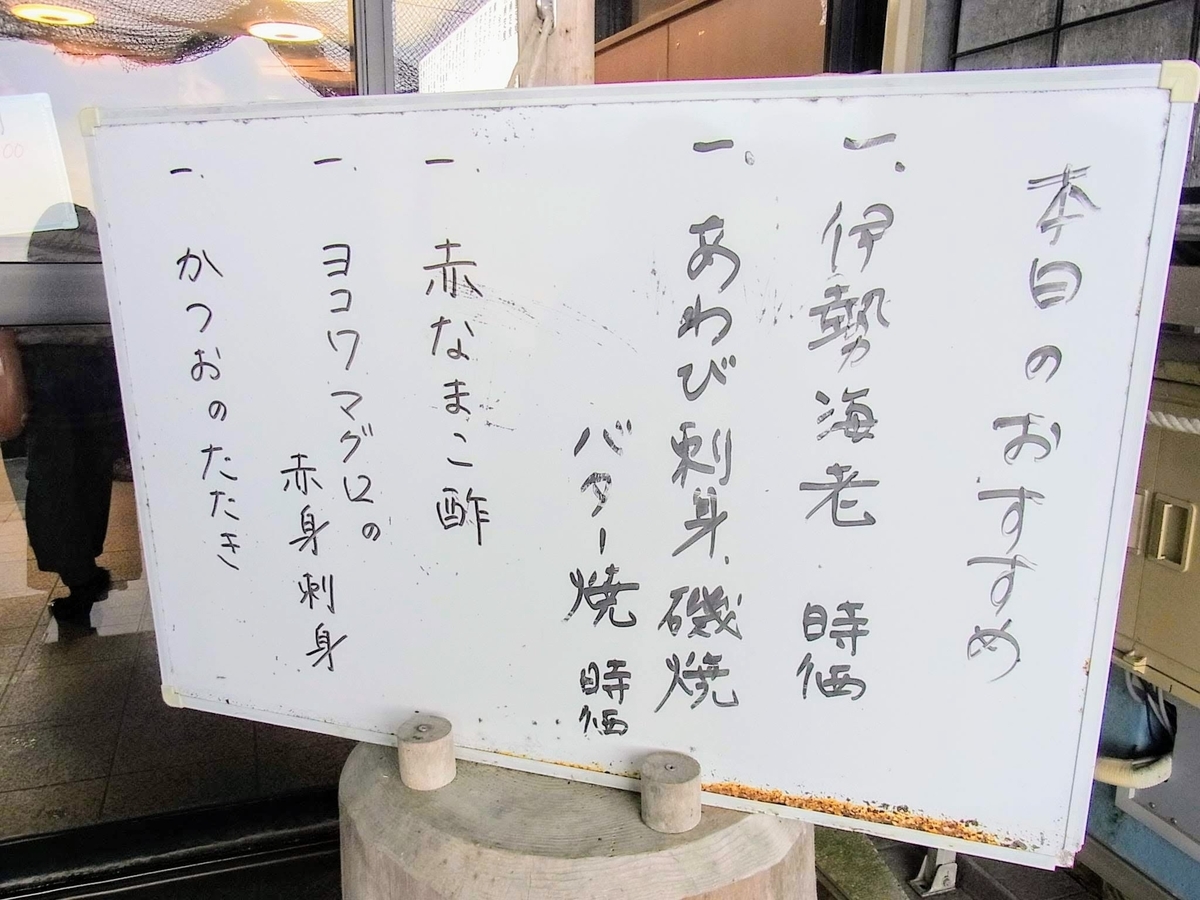 本日のおすすめ
一、伊勢海老 時価
一、あわび刺身、磯焼
バター焼 時価
一、赤なまこ酢
一、ヨコワマグロの
赤身刺身
一、かつおのたたき